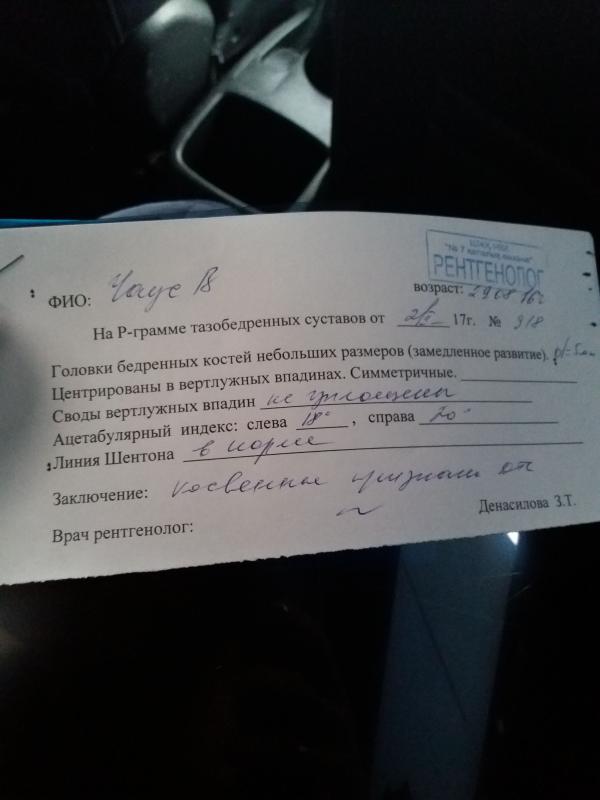 РЕНТГЕНОЛОГ
ФИО: Чаус В возраст: 29 08 16г
На Р-грамме тазобедренных суставов от 17г. № 918
Головки бедренных костей небольших размеров (замедленное развитие). d=5мм
Центрированы в вертлужных впадинах. Симметричные.
Своды вертлужных впадин не уплощены
Ацетабулярный индекс: слева 18°, справа 20°
Линия Шентона в норме
Заключение: косвенные признаки
Врач рентгенолог: Денасилова З.Т.